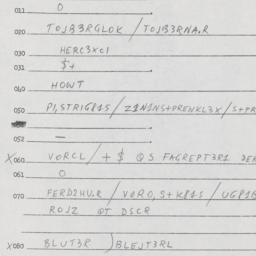 011 O
020 TOJB3RGLOK / TOJB3RNA.R
030 HERC3XCI
031 $+
040 HOWT
050 PI,STRIG81S / Z1N1NS+PRENKL3X / S+PR
052 —
X060 VORCL / + $ QS FAGREPT3R1 DER
061 O
070 FERDZHU.R / VORO,S+K81S / UG81B
ROJZ QT DSCR
X080 BLUT3R / BLEJT3RL